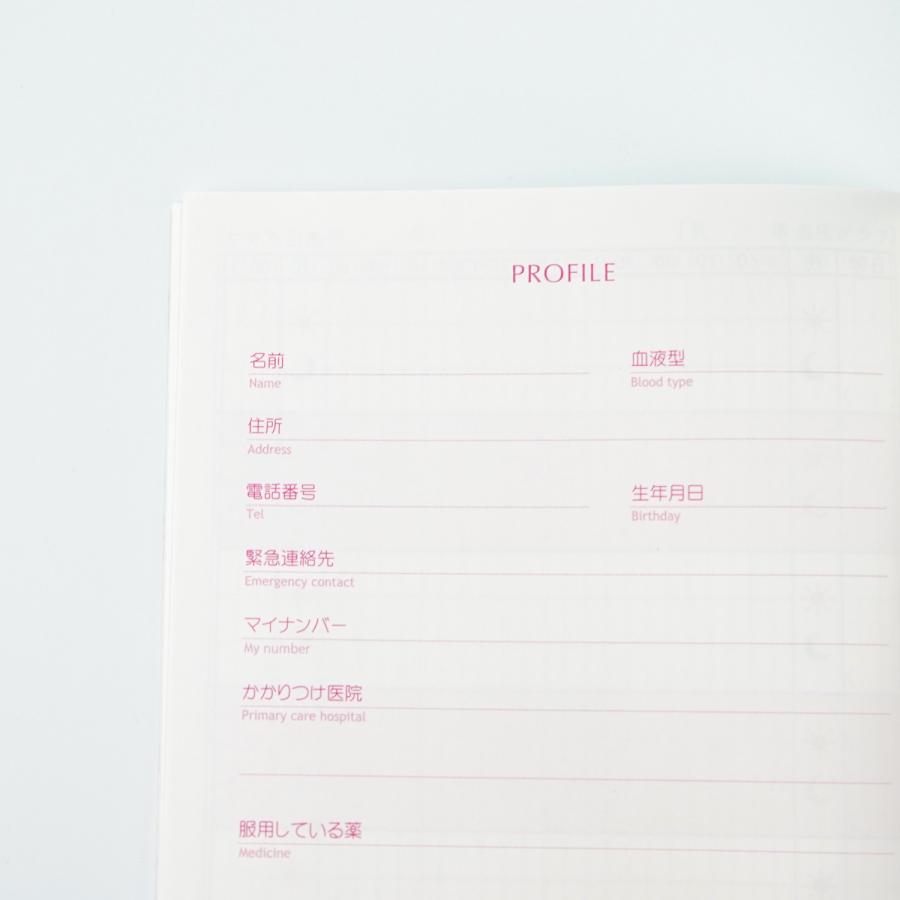 PROFILE
名前
Name
血液型
Blood type
住所
Address
電話番号
Tel
生年月日
Birthday
緊急連絡先
Emergency contact
マイナンバー
My number
かかりつけ医院
Primary care hospital
服用している薬
Medicine